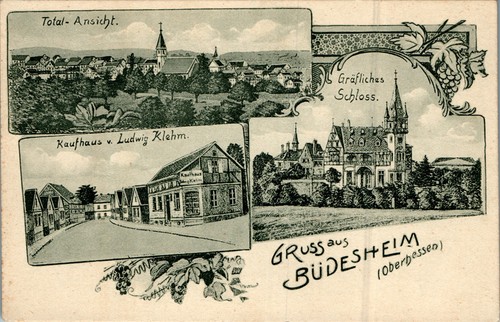 Total-Ansicht.
Gräfliches
Schloss.
Kaufhaus v. Ludwig Klehm.
Kaufhaus
GRUSS aus
BÜDESHEIM
(Oberhessen)